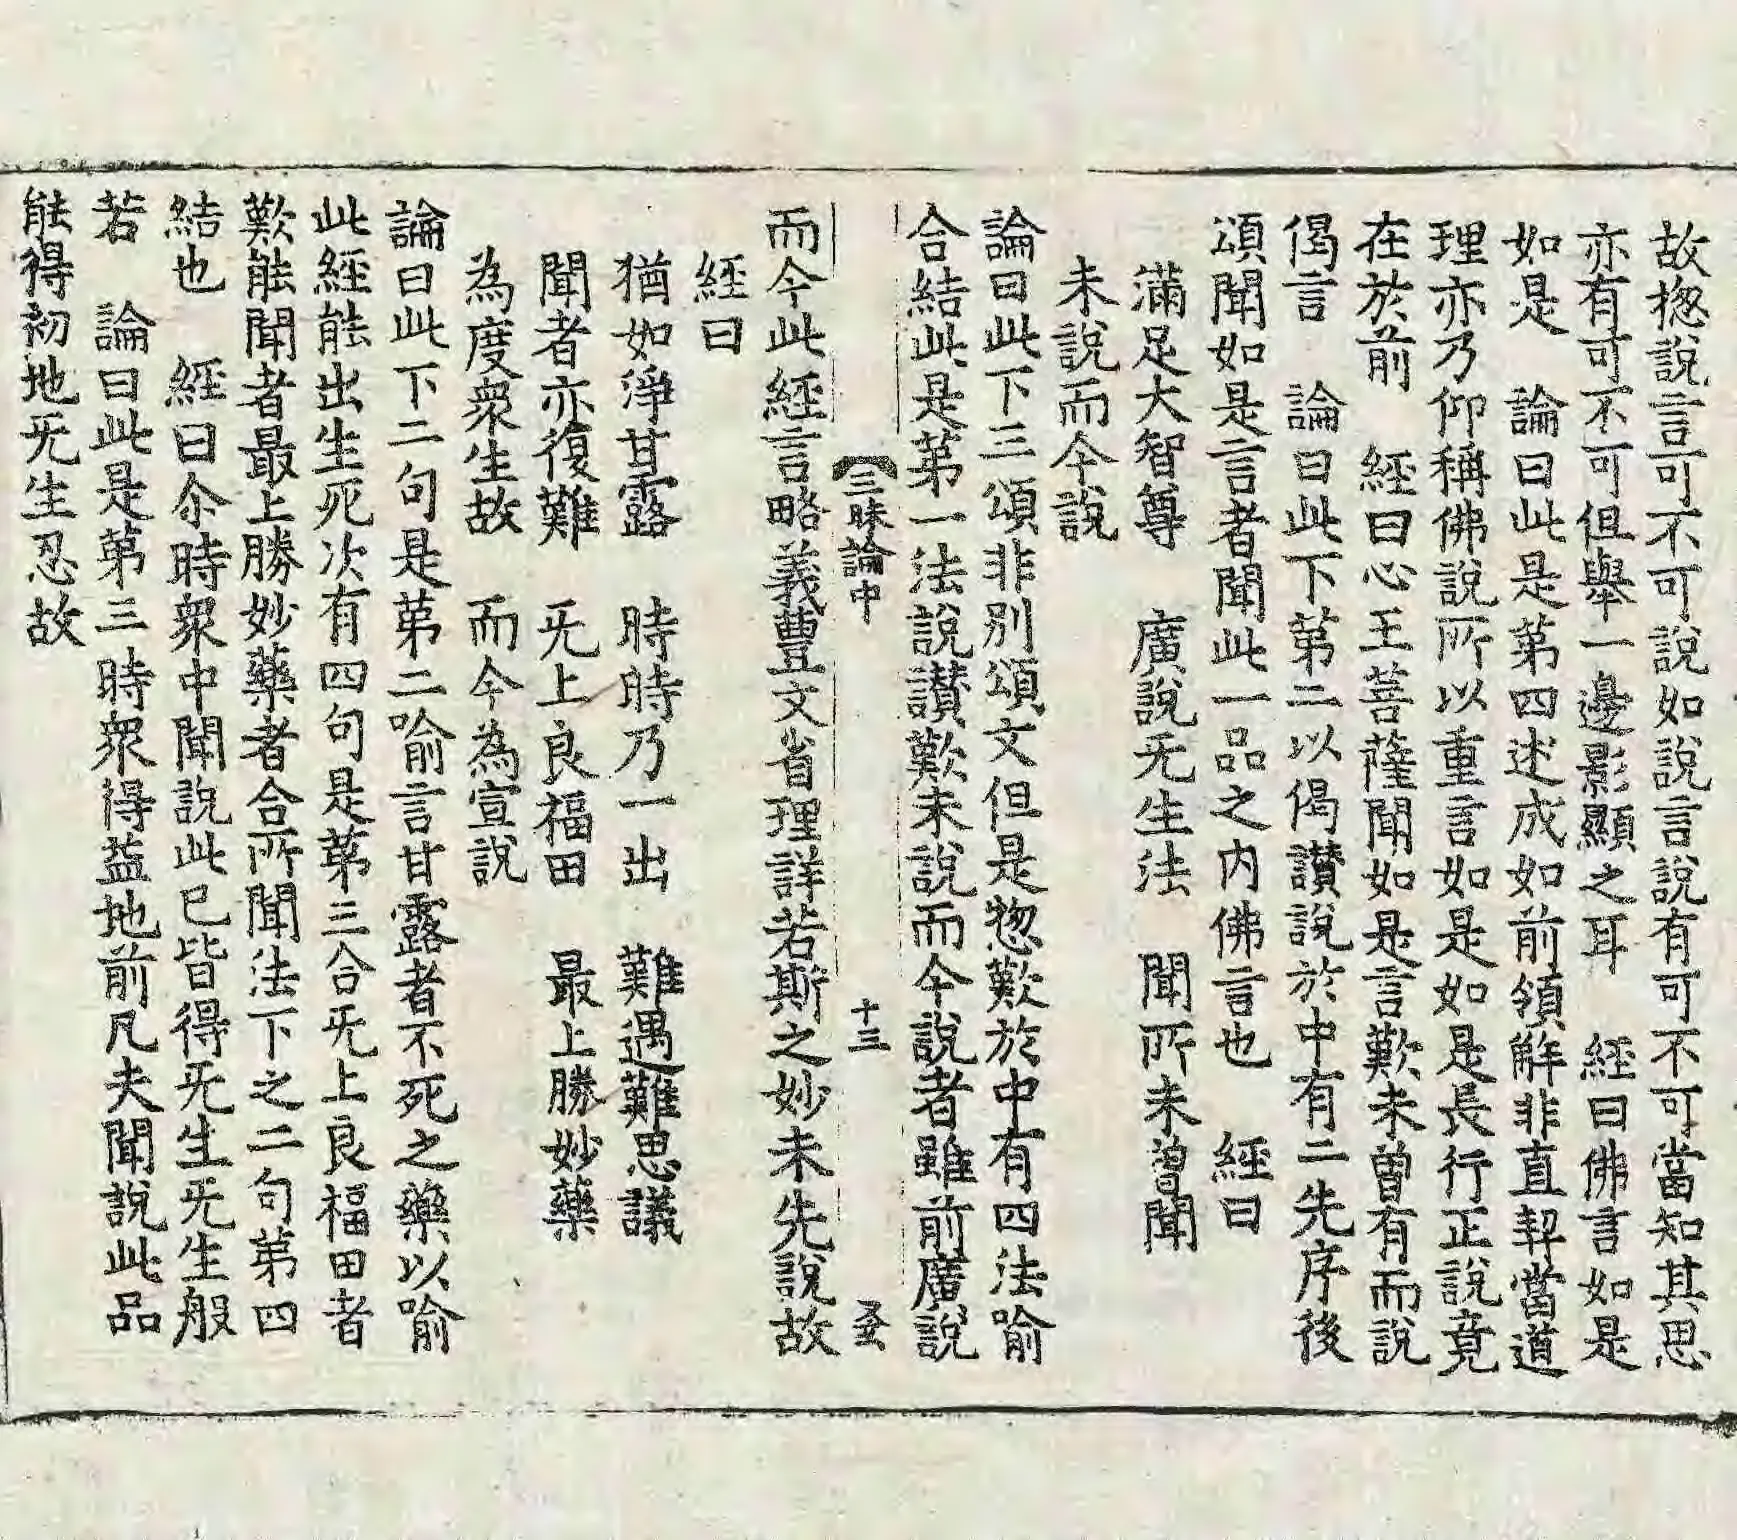 故揔說言可不可說如說言說有可不可當知其思
亦有可不可但舉一邊影顯之耳　經曰佛言如是
如是　論曰此是第四述成如前領解非直契當道
理亦乃仰稱佛說所以重言如是如是長行正說竟
在於前　經曰心王菩薩聞如是言歎未曾有而說
偈言　論曰此下第二以偈讃說於中有二先序後
頌聞如是言者聞此一品之內佛言也　經曰
滿足大智尊　廣說无生法　聞所未曾聞
未說而今說
論曰此下三頌非別頌文但是惣歎於中有四法喻
合結此是第一法說讃歎未說而今說者雖前廣說
三昧論中　十三　㕛
而今此經言略義豊文省理詳若斯之妙未先說故
經曰
猶如淨甘露　時時乃一出　難遇難思議
聞者亦復難　无上良福田　最上勝妙藥
為度衆生故　而今為宣說
論曰此下二句是第二喻言甘露者不死之藥以喻
此經能出生死次有四句是第三合无上良福田者
歎能聞者最上勝妙藥者合所聞法下之二句第四
結也　經曰尒時衆中聞說此已皆得无生无生般
若　論曰此是第三時衆得益地前凡夫聞說此品
能得初地无生忍故